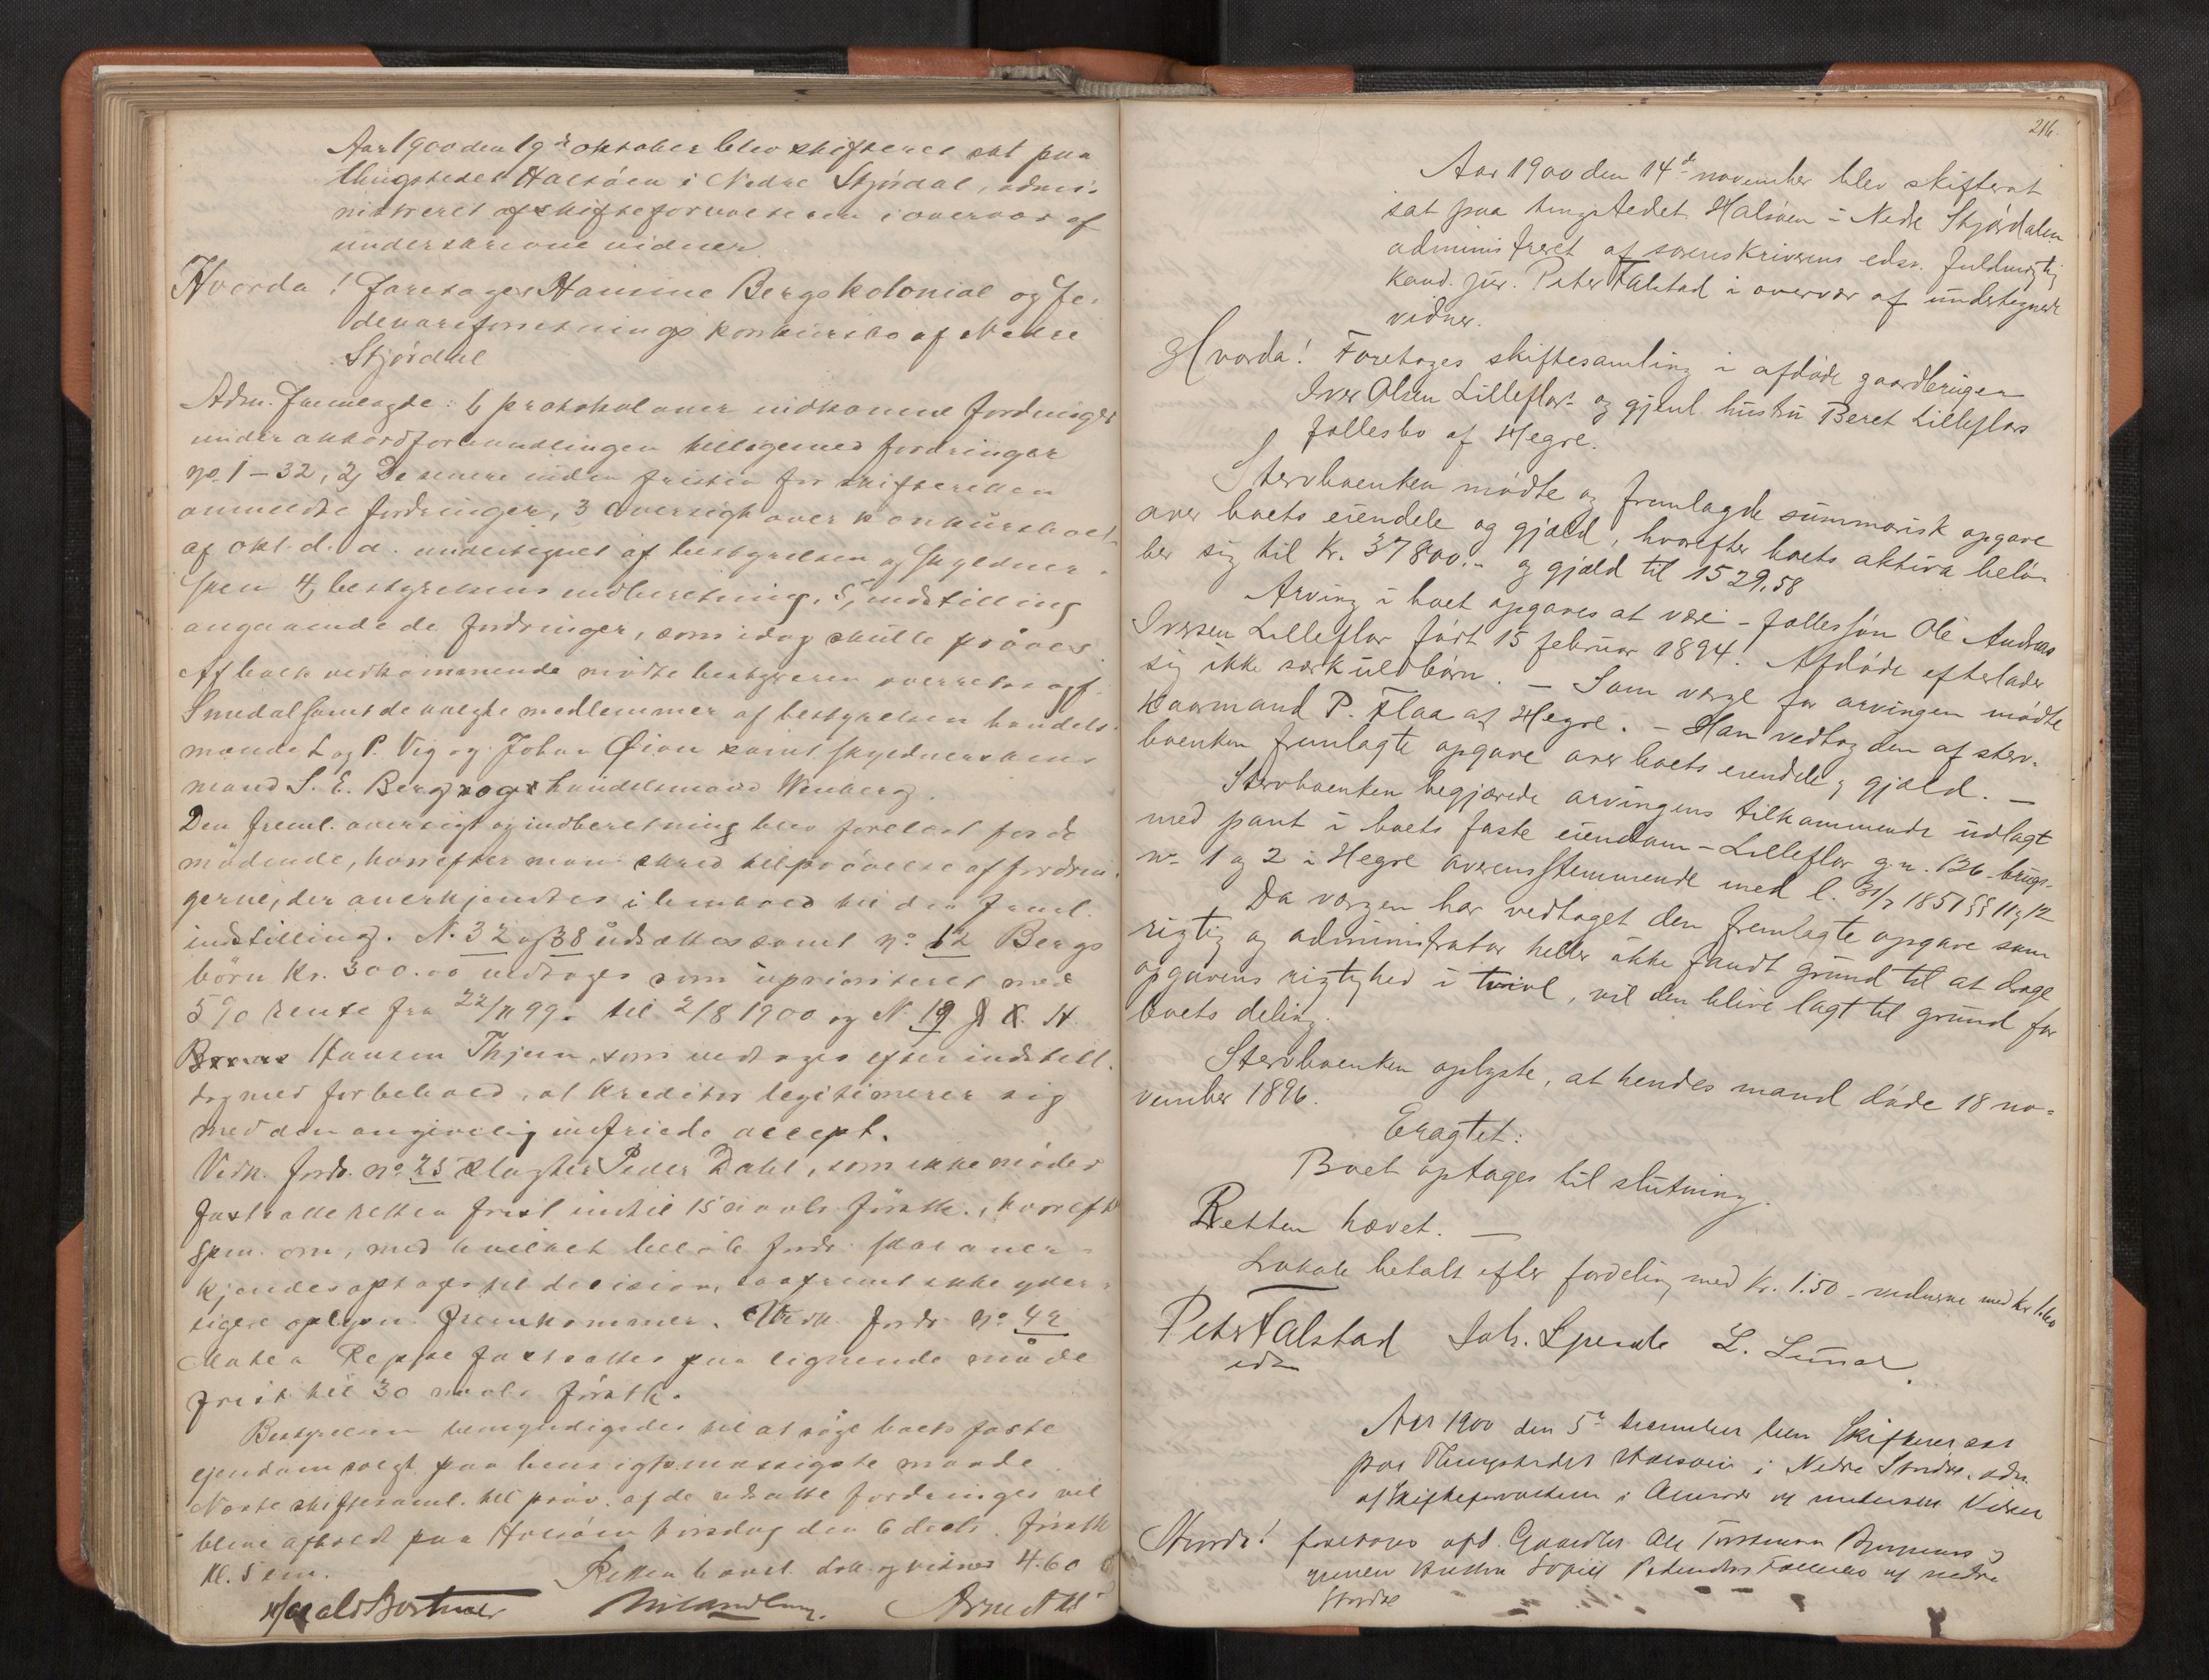 Aar 1900 den 19de oktober blev skifteret sat paa
thingstedet Halsöen i Nedre Stjördal, admi-
nistreret af skifteforvalteren i overvær af
underskrevne vidner
Hvorda! Foretages Hansine Bergs kolonial og fe-
devareforretnings konkursbo af Nedre
Stjördal
Adm. fremlagde: 1, protokol over indkomne fordringer
under akkordforhandlingen tilligemed fordringer
No. 1 – 32, 2, De senere inden fristen for skifteretten
anmeldte fordringer, 3, Oversigt over konkursboet
af okt. d. a. undertegnet af bestyrelsen og skyldner-
sken 4, bestyrelsens indberetning, 5, indstilling
angaaende de fordringer, som idag skulle pröves
Af boets vedkommende mödte bestyreren overretssagf.
Smedal samt de valgte medlemmer af bestyrelsen handels-
mænd L og P. Vig og Johan Öien samt skyldnerskens
mand S. E. Berg og handelsmand Wenberg.
Den freml. oversigt og indberetning blev forelæst for de
mödende, hvorefter man skred til prövelse af fordrin-
gerne, der anerkjendtes i henhold til den freml.
indstilling. N. 32 og 38 udsættes samt No 12 Bergs
börn Kr. 300.00 vedtages som uprioriteret med
5 % rente fra 22/11 99. til 2/8 1900 og N. 19 H
Hansen Thjem, som vedtages efter indstill.
dog med forbehold, at kreditor legitimerer sig
med den angivelig indfriede accept.
Vedk. fordr. No 25 Slagter Peder Dahl, som ikke möder
fastsatte retten frist indtil 15 novbr. förstk., hvorefter
spm. om, med hvilket belöb fordr. skal aner-
kjendes optages til decision, saafremt ikke yder-
ligere oplysn. fremkommer. Vedk. fordr. No 42
Matea Reppe fastsættes paa lignende måde
frist til 30 novbr. förstk.
Bestyrelsen bemyndigedes til at söge boets faste
ejendom solgt paa hensigtsmæssigste maade
Næste skiftesaml. til pröv. af de udsatte fordringer vil
blive afholdt paa Halsöen torsdag den 6 decbr. förstk
Kl. 5 em. Retten hævet. Lok. og vidner 4.60
Harald Bortner
216.
Aar 1900 den 14de november blev skifteret
sat paa tingstedet Halsöen i Nedre Stjördalen
administreret af sorenskriverens edsv. fuldmægtig
kand. jur. Peter Falstad i overvær af undertegnede
vidner.
Hvorda! Foretages skiftesamling i afdöde gaardbruger
Iver Olsen Lilleflor og gjenl. hustru Beret Lilleflos
fællesbo af Hegre.
Stervboenken mödte og fremlagde summarisk opgave
over boets eiendele og gjæld, hvorefter boets aktiva belö-
ber sig til Kr. 37800.- og gjæld til 1529,58
Arving i boet opgaves at være – fællessön Ole Andreas
Iversen Lilleflor födt 15 februar 1894. Afdöde efterlader
sig ikke særkuldbörn. – Som verge for arvingen mödte
kaarmand P. Flaa af Hegre. – Han vedtog den af sterv-
boenken fremlagte opgave over boets eiendele og gjæld. –
Stervboenken begjærede arvingens tilkommende udlagt
med pant i boets faste eiendom – Lilleflor g.n. 136. brugs-
no 1 og 2 i Hegre overensstemmende med l. 31/7 1851 §§ 11 og 12
Da vergen har vedtaget den fremlagte opgave som
rigtig og administrator heller ikke fandt grund til at drage
opgavens rigtighed i tvivl, vil den blive lagt til grund for
boets deling.
Stervboenken oplyste, at hendes mand döde 18 no-
vember 1896.
Eragtet:
Boet optages til slutning.
Retten hævet. –
Lokale betalt efter fordeling med Kr. 1.50 – vidnerne med Kr 1.60
Peter Falstad Joh. L.
eds
Aar 1900 den 5te december blev Skifteret sat
paa Thingstedet Halsøen i Nedre Stjørdal. adm.
af Skifteforvalteren i Overvær af undersk. Vidner
Hvorda! foretages afd. Gaardbr. Ole og
gjenlev Hustru Sofie Pedersdtrs Fællesbo af nedre
Stjørdal